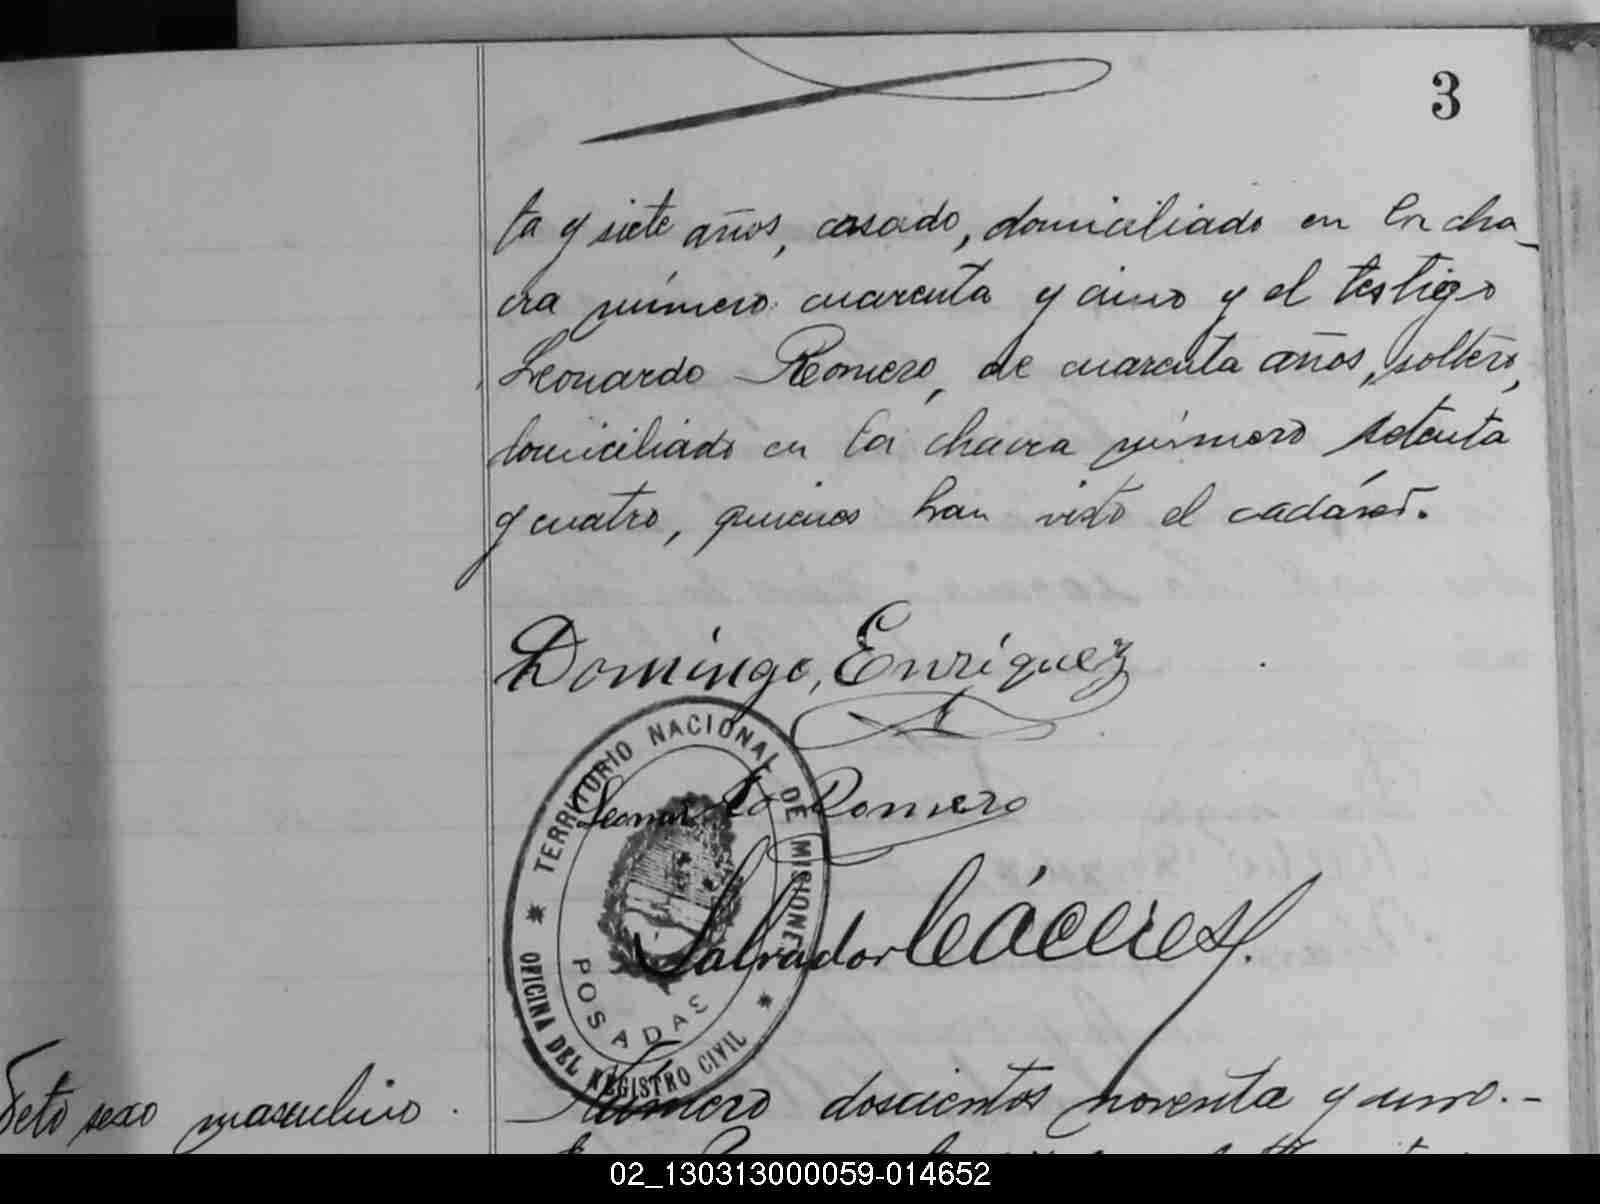 3
ta y siete años, casado, domiciliado en la cha-
cra número cuarenta y cinco y el testigo
Leonardo Romero, de cuarenta años, soltero,
domiciliado en la chacra número setenta
y cuatro, quienes han visto el cadáver.
Domingo, Enriquez
TERRITORIO NACIONAL DE MISIONES
Leonardo Romero
Salvador Cáceres
POSADAS
OFICINA DEL REGISTRO CIVIL
Feto sexo masculino.
Número doscientos noventa y uno.-
02_130313000059-014652